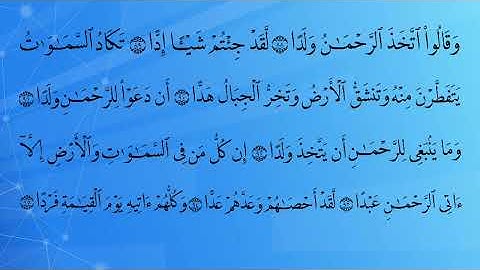 وَقَالُوا۟ ٱتَّخَذَ ٱلرَّحْمَـٰنُ وَلَدًا ۝ لَّقَدْ جِئْتُمْ شَيْـًٔا إِدًّا ۝ تَكَادُ ٱلسَّمَـٰوَٰتُ
يَتَفَطَّرْنَ مِنْهُ وَتَنشَقُّ ٱلْأَرْضُ وَتَخِرُّ ٱلْجِبَالُ هَدًّا ۝ أَن دَعَوْا۟ لِلرَّحْمَـٰنِ وَلَدًا ۝
وَمَا يَنۢبَغِى لِلرَّحْمَـٰنِ أَن يَتَّخِذَ وَلَدًا ۝ إِن كُلُّ مَن فِى ٱلسَّمَـٰوَٰتِ وَٱلْأَرْضِ إِلَّآ
ءَاتِى ٱلرَّحْمَـٰنِ عَبْدًا ۝ لَّقَدْ أَحْصَىٰهُمْ وَعَدَّهُمْ عَدًّا ۝ وَكُلُّهُمْ ءَاتِيهِ يَوْمَ ٱلْقِيَـٰمَةِ فَرْدًا ۝